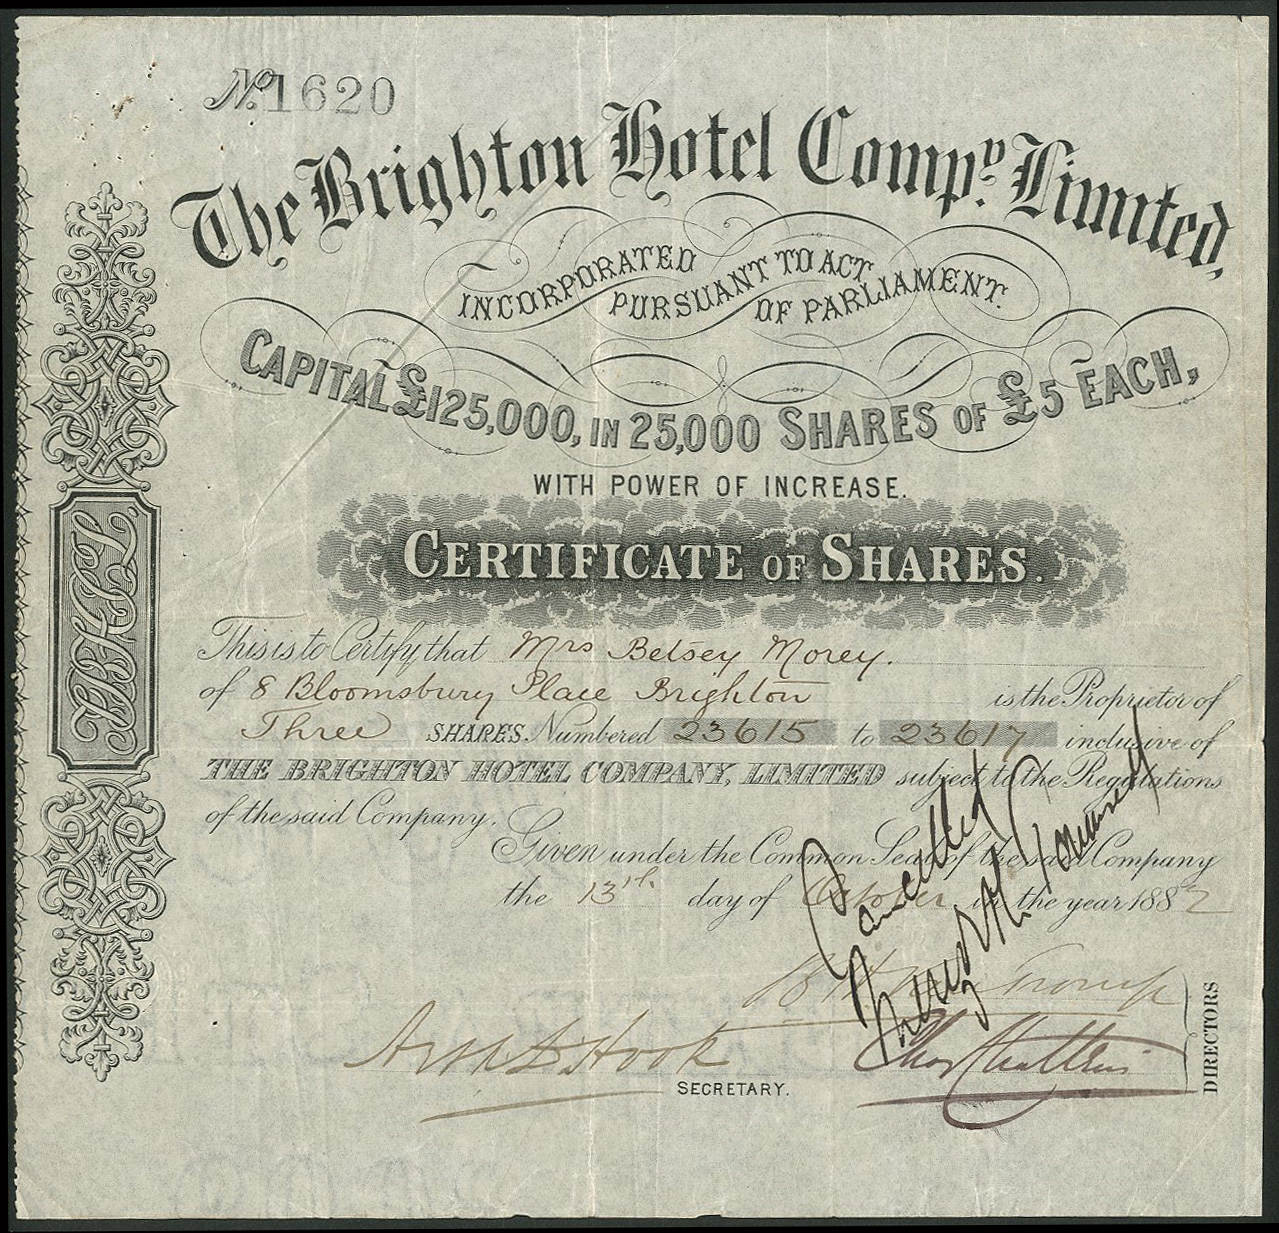 No. 1620
The Brighton Hotel Compy. Limited,
INCORPORATED PURSUANT TO ACT OF PARLIAMENT.
CAPITAL £125,000, IN 25,000 SHARES OF £5 EACH,
WITH POWER OF INCREASE.
CERTIFICATE OF SHARES.
This is to Certify that Mrs Betsey Morey.
of 8 Bloomsbury Place Brighton is the Proprietor of
Three SHARES. Numbered 23615 to 23617 inclusive of
THE BRIGHTON HOTEL COMPANY, LIMITED subject to the Regulations
of the said Company.
Given under the Common Seal of the said Company
the 13th day of October in the year 1882
Cancelled
DIRECTORS
Hook
SECRETARY.